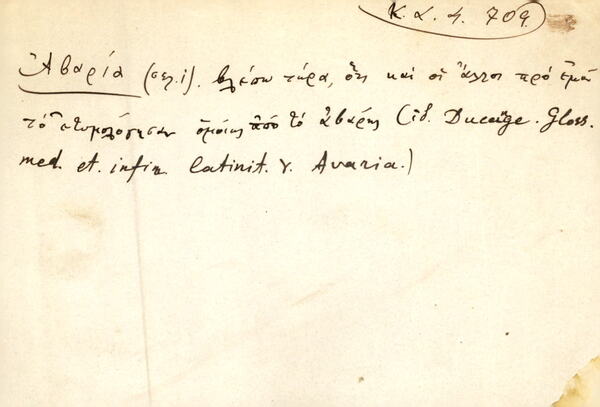 Κ. Δ. 4. 709
Ἀβαρία (σελ. i). βλέπω τώρα, ὅτι καὶ οἱ ἄλλοι πρὸ ἐμοῦ
τὸ ἐτυμολόγησαν ὁμοίως ἀπὸ τὸ ἀβαρής (ἰδ. Ducange. Gloss.
med. et. infim. latinit. v. Avaria.)